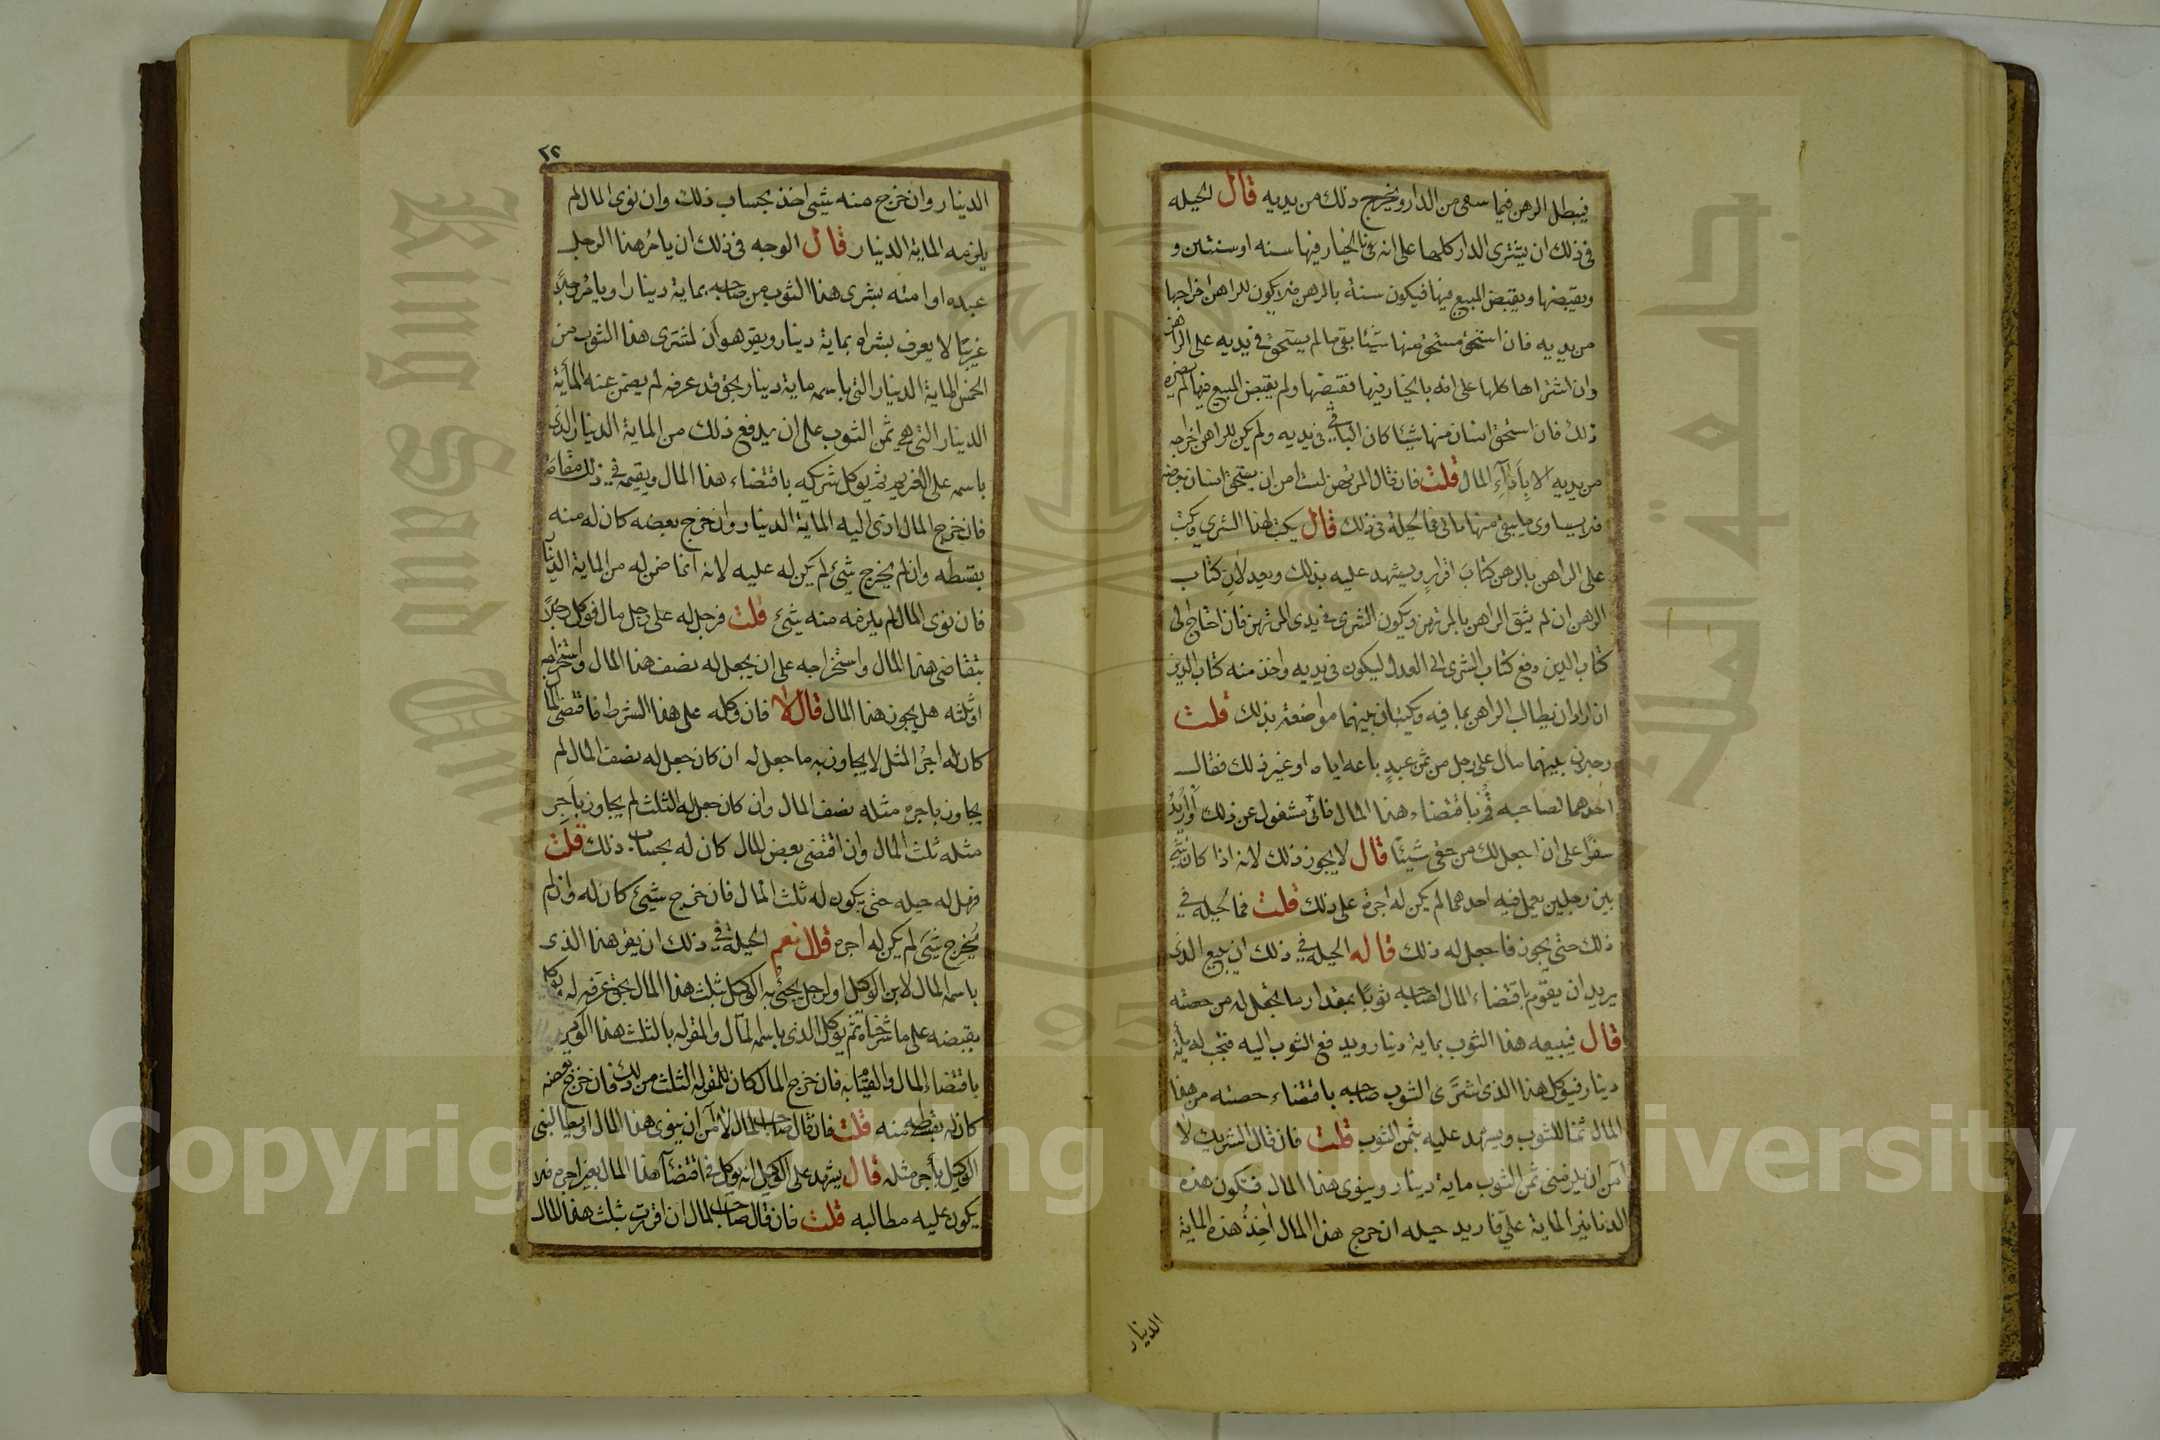 فيبطل الرهن فيما سمى من الدار ويخرج ذلك من يديه قال الحيله
فى ذلك ان يشترى الدار كلها على انه بالخيار فيها سنه او سنتين و
ويقبضها ويقبض المبيع فيها فيكون سنة بالرهن فلا يكون للراهن اخراجها
من يديه فان استحق مستحق منها شيئا بقى ما لم يستحق فى يديه على الرهن
وان اشتراها كلها على انه بالخيار فيها فقبضها ولم يقبض المبيع فيها لم يضره
ذلك فان استحق انسان منها شيئا كان الباقى فى يديه ولم يكن للراهن اخراجه
من يديه الا باداء المال قلت فان قال المرتهن لست امن ان يستحق انسان بعضه
فلا يساوى ما يبقى منها مالى فما الحيلة فى ذلك قال يكتب هذا الشرى وكتب
على الراهن بالرهن كتاب اقرار ويشهد عليه بذلك ويعدلان كتاب
الرهن ان لم يثق الراهن بالمرتهن ويكون الشرى فى يدى المرتهن فان احتاج الى
كتاب الدين دفع كتاب الشرى الى العدل ليكون فى يديه واخذ منه كتاب الدين
اذا اراد ان يطالب الراهن بما فيه ويكتبان بينهما مواضعة بذلك قلت
رجلان بينهما مال على رجل من ثمن عبد باعه اياه او غير ذلك فقال
احدهما لصاحبه قم باقتضاء هذا المال فانى مشغول عن ذلك او اريد
سفرا على ان اجعل لك من حقى شيئا قال لا يجوز ذلك لانه اذا كان شيئ
بين رجلين يعمل فيه احدهما لم يكن له اجرة على ذلك قلت فما الحيله فى
ذلك حتى يجوز ما جعل له ذلك قال له الحيله فى ذلك ان يبيع الذى
يريد ان يقوم باقتضاء المال لصاحبه ثوبا بمقدار ما يجعل له من حصته
قال فيبيعه هذا الثوب بماية دينار ويدفع الثوب اليه فتجب له ماية
دينار فيوكل هذا الذى اشترى الثوب صاحبه باقتضاء حصته من هذا
المال ثمنا للثوب ويشهد عليه بثمن الثوب قلت فان قال الشريك لا
آمن ان يلزمنى ثمن الثوب ماية دينار وينوى هذا المال فتكون هذه
الدنانير الماية على فاريد حيله ان خرج هذا المال اخذ هذه الماية
الدينار
٢٢
الدينار وان خرج منه شيى اخذ بحساب ذلك وان نوى المال لم
يلزمه الماية الدينار قال الوجه فى ذلك ان يامر هذا الرجل
عبده او امته بشرى هذا الثوب من صاحبه بماية دينار او يامر رجلا
غريبا لا يعرف بشراه بماية دينار ويقر هو ان لمشترى هذا الثوب من
الخمس الماية الدينار التى باسمه ماية دينار بحق قد عرفه له يضمن عنه الماية
الدينار التى هى ثمن الثوب على ان يدفع ذلك من الماية الدينار الذى
باسمه على الغريم ثم يوكل شريكه باقتضاء هذا المال ويقيمه فى ذلك مقامه
فان خرج المال ادى اليه الماية الدينار وان خرج بعضه كان له منه
بقسطه وان لم يخرج شيئ لم يكن له عليه لانه انما ضمن له من الماية الدينار
فان نوى المال لم يلزمه منه شيئ قلت فرجل له على رجل مال فوكل رجلا
بتقاضى هذا المال واستخراجه على ان يجعل له نصف هذا المال واستخراجه
او ثلثه هل يجوز هذا المال قال لا فان وكله على هذا الشرط فاقتضى المال
كان له اجر المثل لا يجاوز به ما جعل له ان كان جعل له نصف المال لم
يجاوز باجرة مثله نصف المال وان كان جعل له الثلث لم يجاوز باجر
مثله ثلث المال وان اقتضى بعض المال كان له بحساب ذلك قلت
فهل له حيله حتى يكون له ثلث المال فان خرج شيئ كان له وان لم
يخرج شيى لم يكن له اجرة قال نعم الحيلة فى ذلك ان يقر هذا الذى
باسمه المال لابن الوكيل او لرجل يجئ به الوكيل بثلث هذا المال بحق عرفه له
يقبضه على ما شرحناه ثم يوكل الذى باسمه المال والمقر له بالثلث هذا الوكيل
باقتضاء المال والقيام به فان خرج المال كان للمقر له الثلث من ذلك فان خرج بعضه
كان له بقسطه منه قلت فان قال صاحب المال لا آمن ان ينوى هذا المال او يطالبنى
الوكيل باجر مثله قال يشهد على الوكيل انه يوكل فى اقتضاء هذا المال بغير اجرة فلا
يكون عليه مطالبه قلت فان قال صاحب المال ان اقررت بثلث هذا المال
King Saud University
جامعة الملك
1957
Copyright © King Saud University